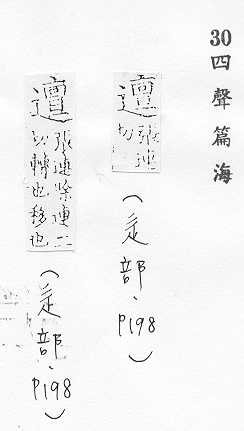 30四聲篇海
邅 張連切（辵部、P198）
邅 張連除連二切轉也移也（辵部、P198）